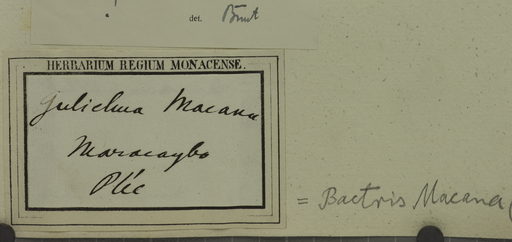 det. Burret
HERBARIUM REGIUM MONACENSE.
Gulielma Macana
Maracaybo
Plée
= Bactris Macana (